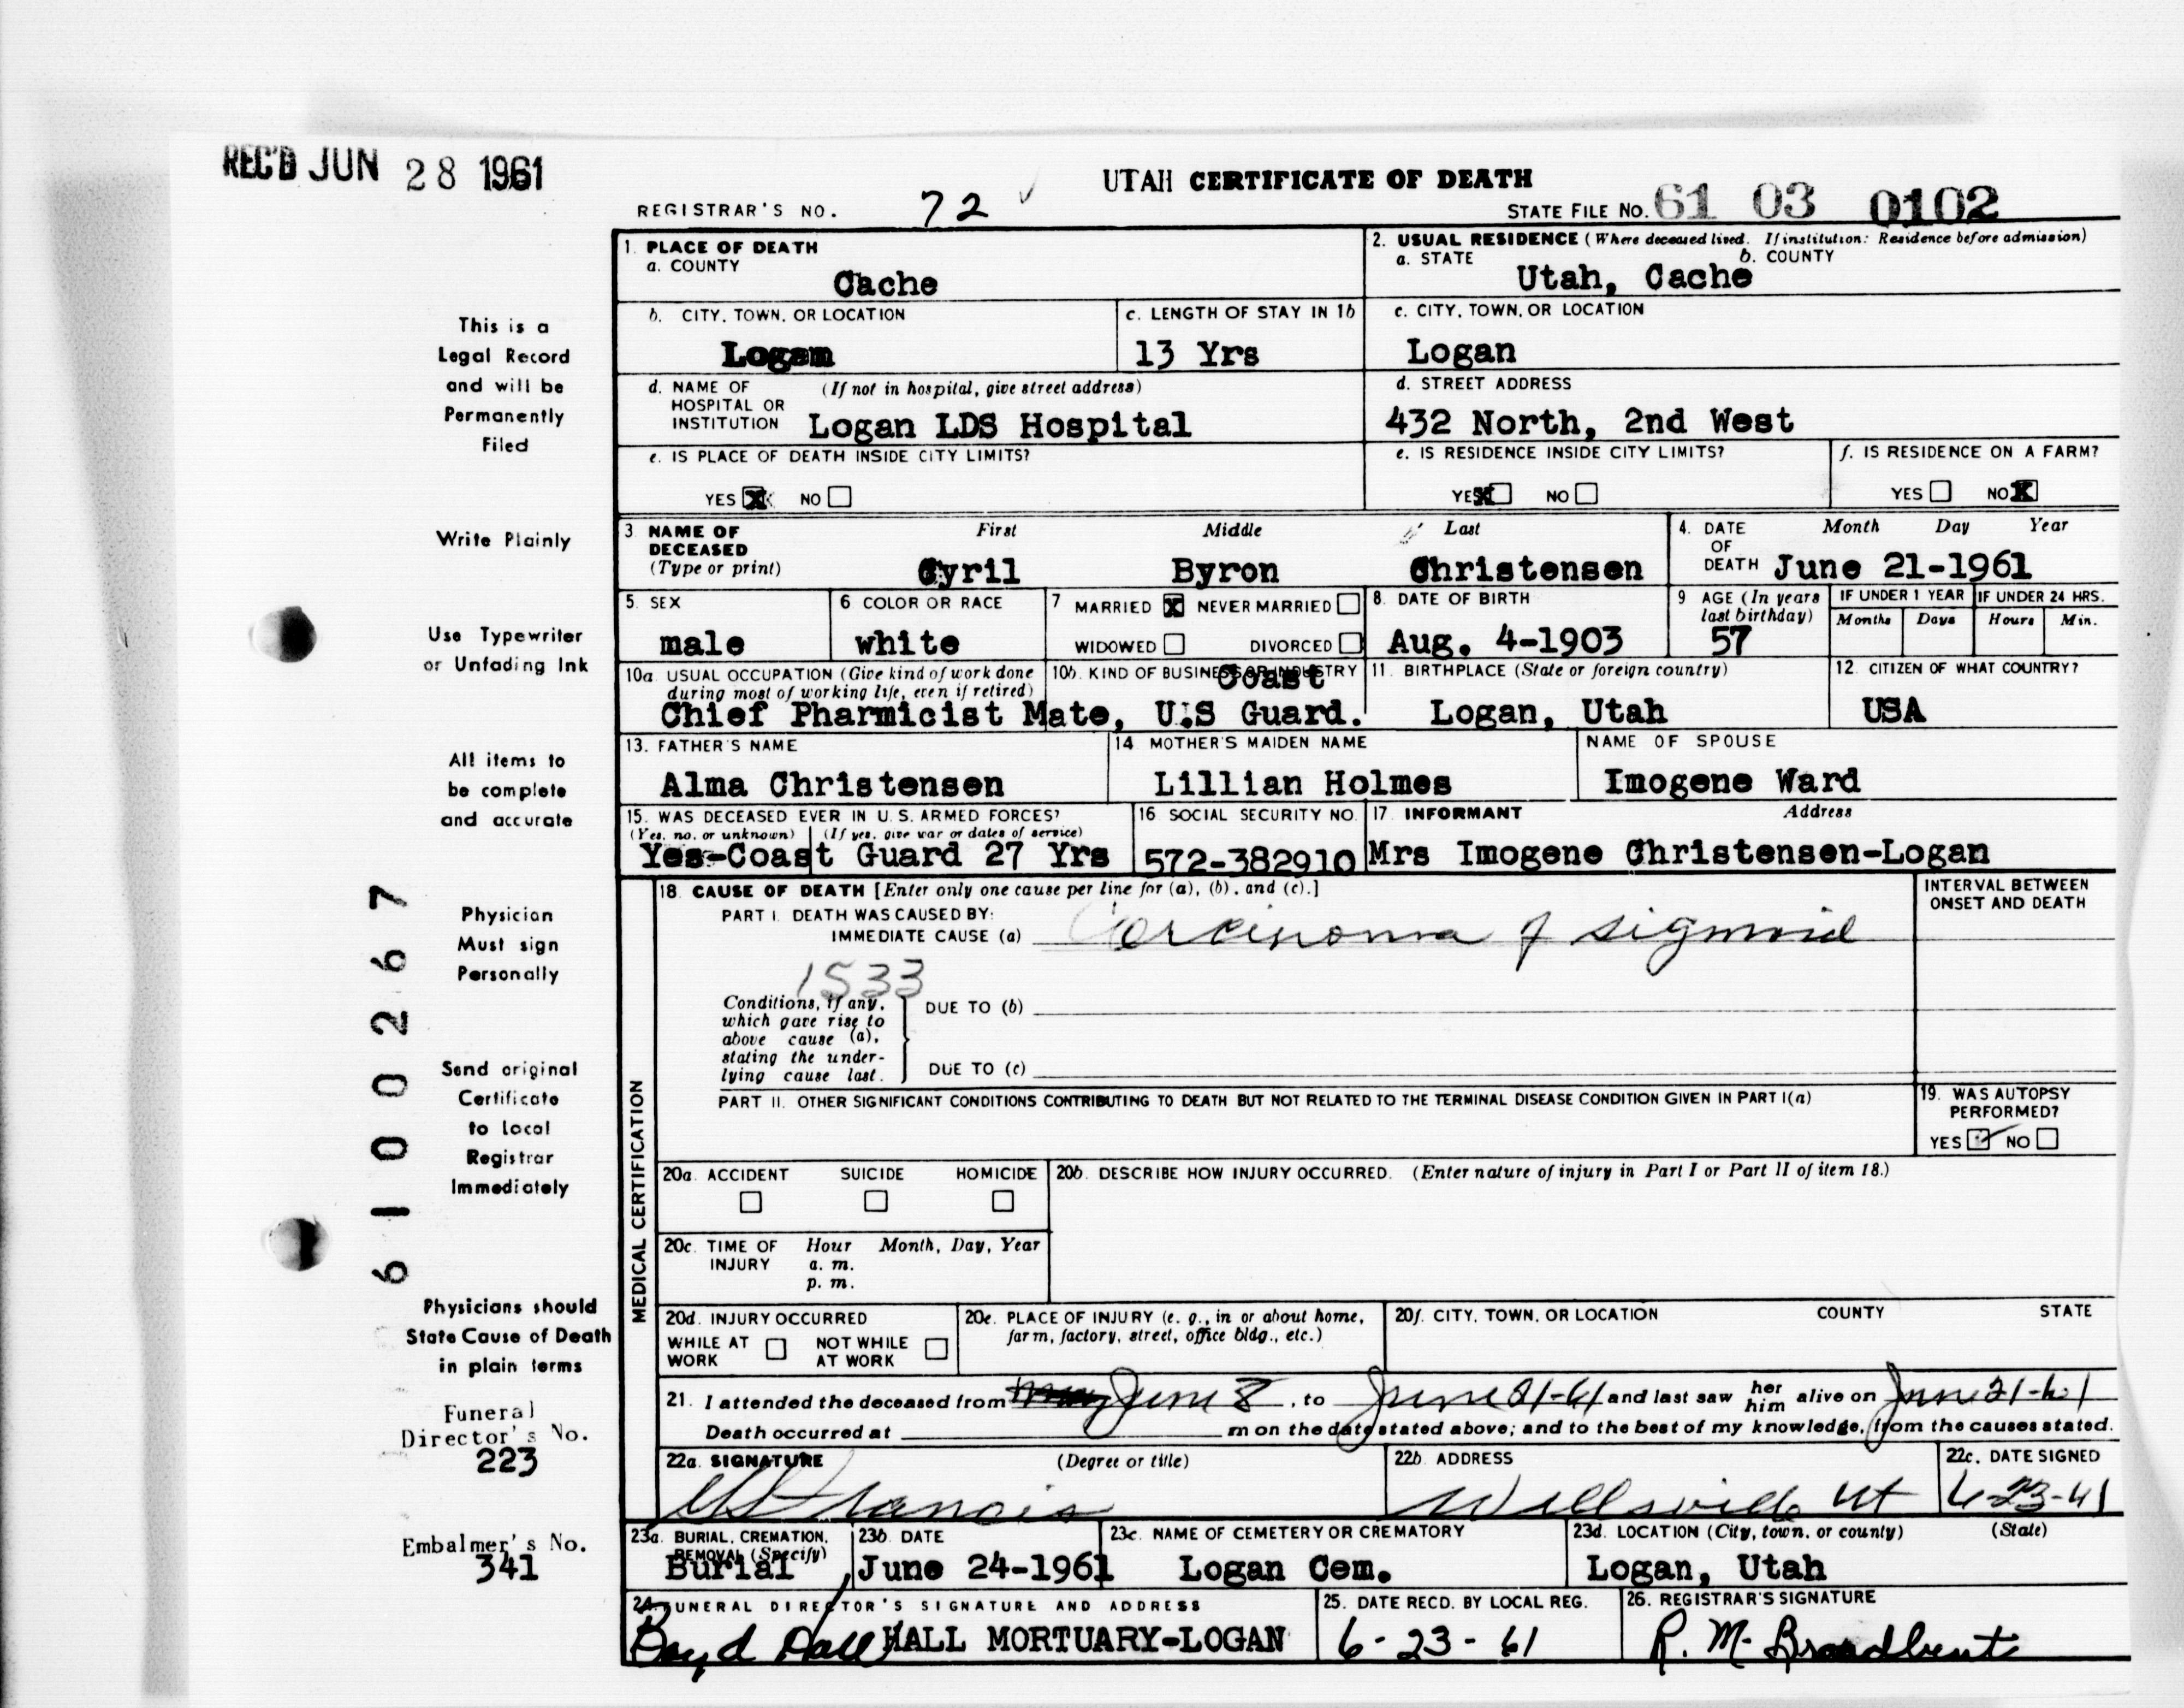 REC'D JUN 28 1961
UTAH CERTIFICATE OF DEATH
REGISTRAR'S NO. 72
STATE FILE No. 61 03 0102
1. PLACE OF DEATH
a. COUNTY
Cache
2. USUAL RESIDENCE (Where deceased lived. If institution: Residence before admission)
a. STATE b. COUNTY
Utah, Cache
b. CITY, TOWN, OR LOCATION
Logan
c. LENGTH OF STAY IN 1b
13 Yrs
c. CITY, TOWN, OR LOCATION
Logan
d. NAME OF (If not in hospital, give street address)
HOSPITAL OR
INSTITUTION Logan LDS Hospital
d. STREET ADDRESS
432 North, 2nd West
e. IS PLACE OF DEATH INSIDE CITY LIMITS?
YES X NO
e. IS RESIDENCE INSIDE CITY LIMITS?
YES X NO
f. IS RESIDENCE ON A FARM?
YES NO X
3 NAME OF DECEASED (Type or print)
First Middle Last
Cyril Byron Christensen
4. DATE OF DEATH
Month Day Year
June 21-1961
5. SEX
male
6 COLOR OR RACE
white
7 MARRIED X NEVER MARRIED
WIDOWED DIVORCED
8. DATE OF BIRTH
Aug. 4-1903
9 AGE (In years last birthday)
57
IF UNDER 1 YEAR
Months Days
IF UNDER 24 HRS.
Hours Min.
10a. USUAL OCCUPATION (Give kind of work done
during most of working life, even if retired)
10b. KIND OF BUSINESS OR INDUSTRY
Coast
Chief Pharmicist Mate, U.S Guard.
11. BIRTHPLACE (State or foreign country)
Logan, Utah
12. CITIZEN OF WHAT COUNTRY?
USA
13. FATHER'S NAME
Alma Christensen
14 MOTHER'S MAIDEN NAME
Lillian Holmes
NAME OF SPOUSE
Imogene Ward
15. WAS DECEASED EVER IN U.S. ARMED FORCES?
(Yes, no, or unknown) (If yes, give war or dates of service)
Yes-Coast Guard 27 Yrs
16 SOCIAL SECURITY NO.
572-382910
17 INFORMANT Address
Mrs Imogene Christensen-Logan
MEDICAL CERTIFICATION
18. CAUSE OF DEATH [Enter only one cause per line for (a), (b), and (c).]
PART I. DEATH WAS CAUSED BY:
IMMEDIATE CAUSE (a) Carcinoma of sigmoid
INTERVAL BETWEEN
ONSET AND DEATH
1533
Conditions, if any,
which gave rise to
above cause (a),
stating the under-
lying cause last.
DUE TO (b)
DUE TO (c)
PART II. OTHER SIGNIFICANT CONDITIONS CONTRIBUTING TO DEATH BUT NOT RELATED TO THE TERMINAL DISEASE CONDITION GIVEN IN PART I(a)
19. WAS AUTOPSY
PERFORMED?
YES ✓ NO
20a. ACCIDENT SUICIDE HOMICIDE
20b. DESCRIBE HOW INJURY OCCURRED. (Enter nature of injury in Part I or Part II of item 18.)
20c. TIME OF INJURY
Hour Month, Day, Year
a. m.
p. m.
20d. INJURY OCCURRED
WHILE AT WORK NOT WHILE AT WORK
20e. PLACE OF INJURY (e. g., in or about home,
farm, factory, street, office bldg., etc.)
20f. CITY, TOWN, OR LOCATION COUNTY STATE
21. I attended the deceased from June 8, to June 21-61 and last saw her him alive on June 21-61
Death occurred at m on the date stated above; and to the best of my knowledge, from the causes stated.
22a. SIGNATURE (Degree or title)
Francis
22b. ADDRESS
Wellsville Ut
22c. DATE SIGNED
6-23-61
23a. BURIAL, CREMATION,
REMOVAL (Specify)
Burial
23b. DATE
June 24-1961
23c. NAME OF CEMETERY OR CREMATORY
Logan Cem.
23d. LOCATION (City, town, or county) (State)
Logan, Utah
24. FUNERAL DIRECTOR'S SIGNATURE AND ADDRESS
Boyd Hall HALL MORTUARY-LOGAN
25. DATE RECD. BY LOCAL REG.
6-23-61
26. REGISTRAR'S SIGNATURE
R. M. Broadbent
This is a
Legal Record
and will be
Permanently
Filed
Write Plainly
Use Typewriter
or Unfading Ink
All items to
be complete
and accurate
Physician
Must sign
Personally
Send original
Certificate
to Local
Registrar
Immediately
Physicians should
State Cause of Death
in plain terms
Funeral
Director's No.
223
Embalmer's No.
341
6100267